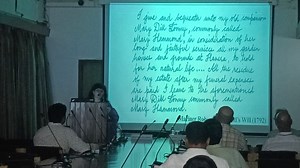 I give and bequeath unto my old companion
Mary Dill Lonny, commonly called
Mary Hammond, in consideration of her
long and faithful services all my garden
houses and grounds at
for her natural life.... All the residue
of my estate after my funeral expenses
are paid I leave to the aforementioned
Mary Dill Lonny commonly called
Mary Hammond.
Will (1792)